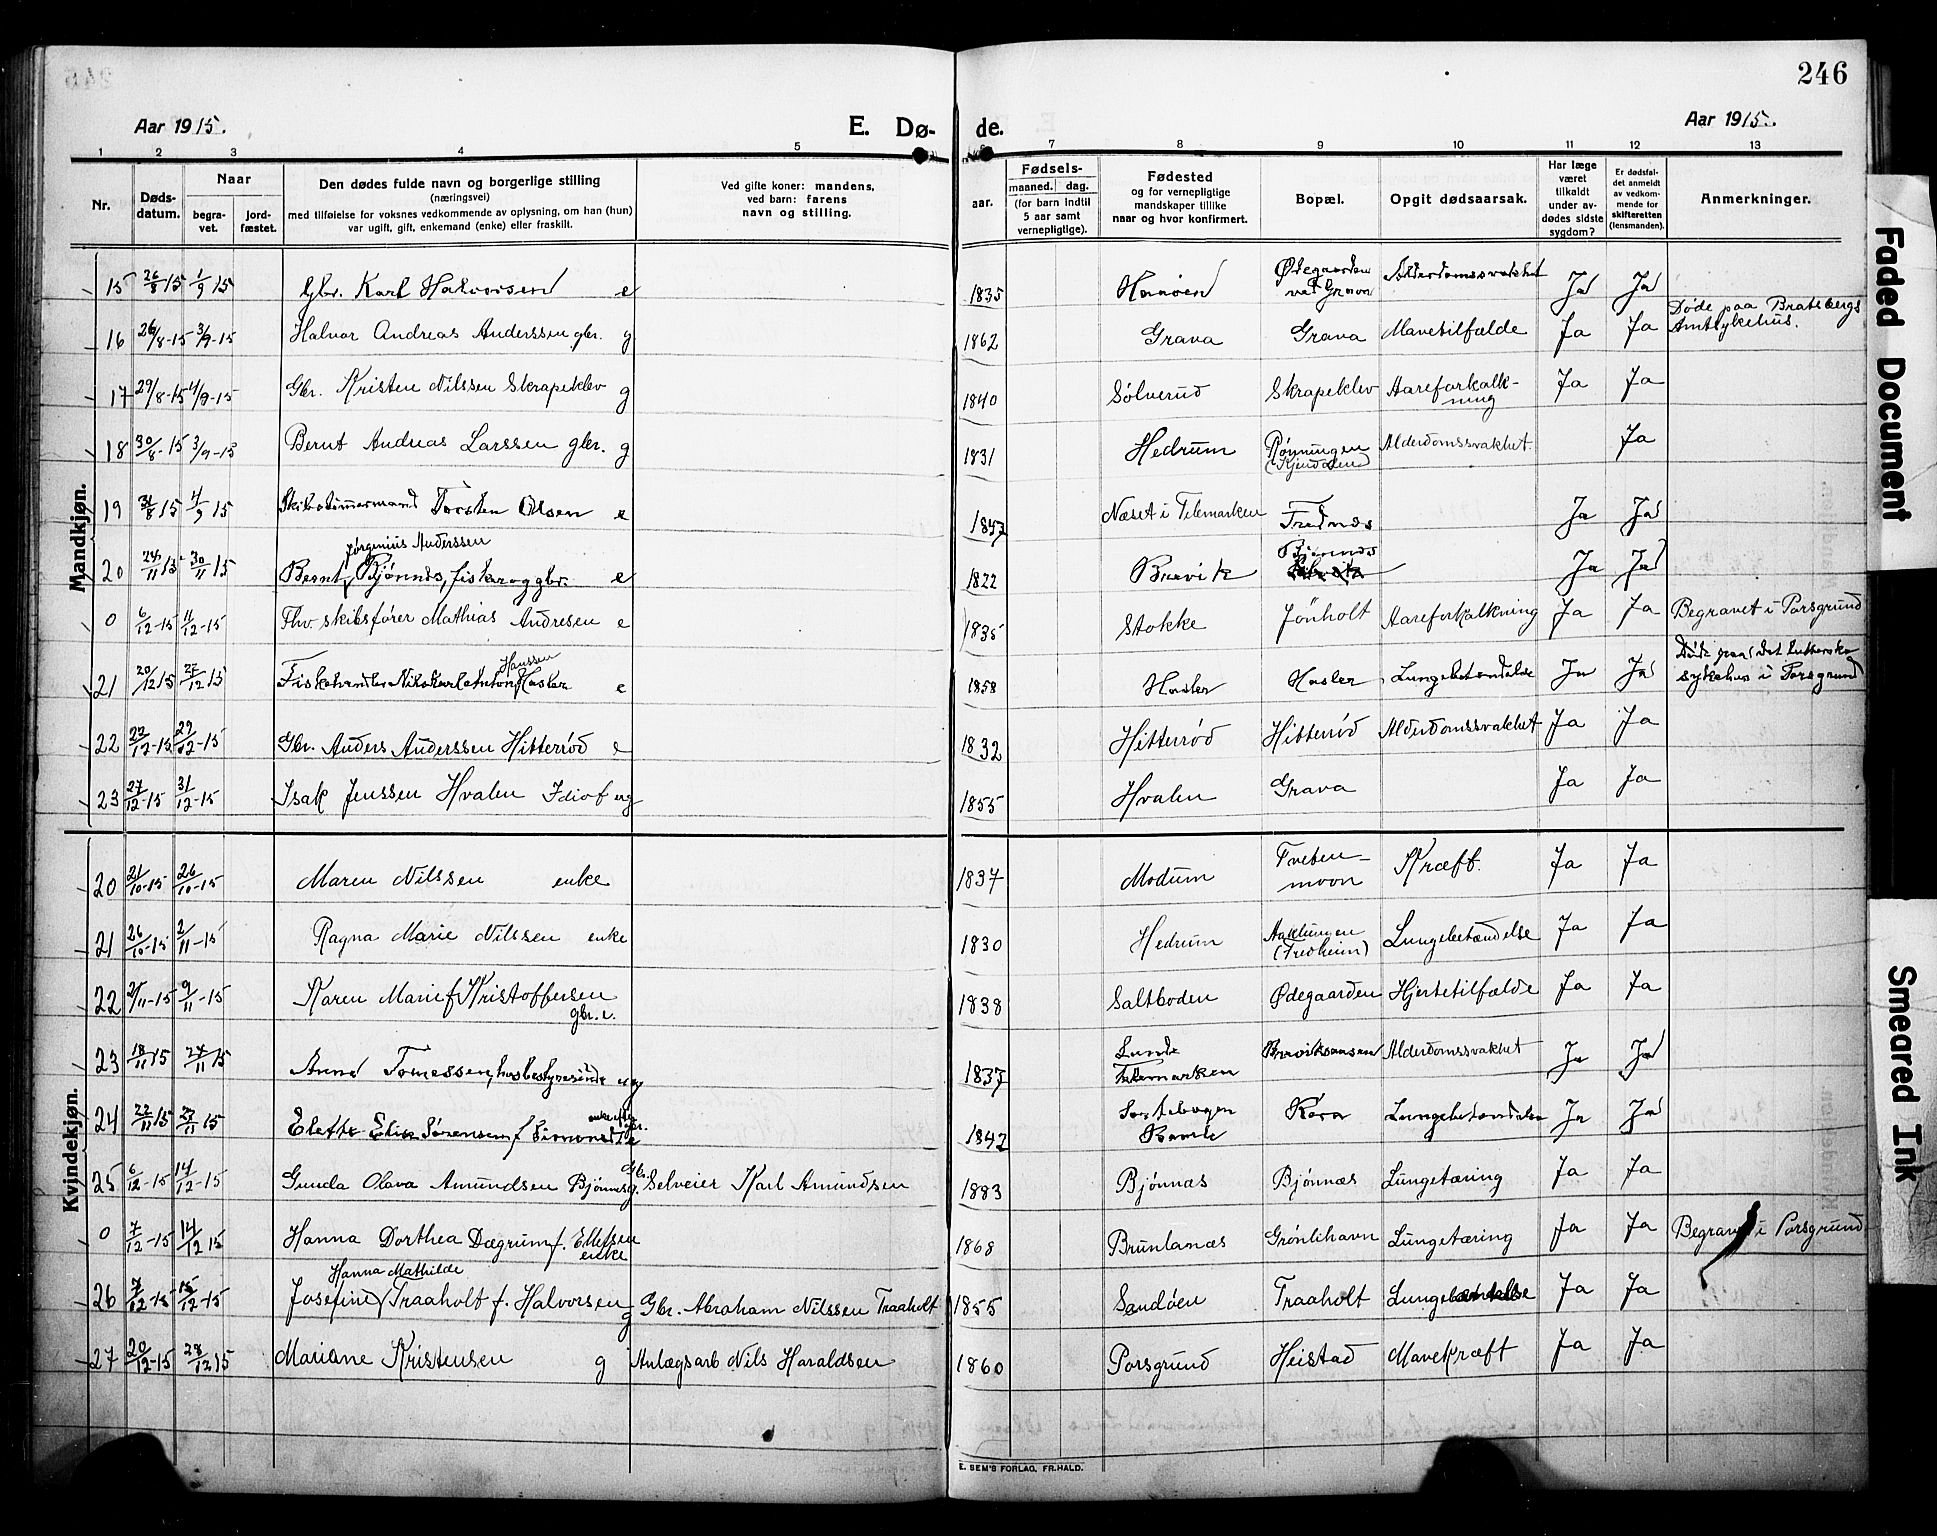 246
Aar 1915.
E. Dø-
de.
Aar 1915.
1 2 3 4 5 7 8 9 10 11 12 13
Nr.
Døds-
datum.
Naar
begra-
vet.
jord-
fæstet.
Den dødes fulde navn og borgerlige stilling
(næringsvei)
med tilføielse for voksnes vedkommende av oplysning, om han (hun)
var ugift, gift, enkemand (enke) eller fraskilt.
Ved gifte koner: mandens,
ved barn: farens
navn og stilling.
aar.
Fødsels-
maaned. dag.
(for barn indtil
5 aar samt
vernepligtige).
Fødested
og for vernepligtige
mandskaper tillike
naar og hvor konfirmert.
Bopæl.
Opgit dødsaarsak.
Har læge
været
tilkaldt
under av-
dødes sidste
sygdom?
Er dødsfal-
det anmeldt
av vedkom-
mende for
skifteretten
(lensmanden).
Anmerkninger.
Mandkjøn.
15 26/8 15 1/9 15 Gbr. Karl Halvorsen e 1835 Ødegaarden Alderdomssvakhet Ja Ja
ved Grava
Døde paa Bratsbergs
16 26/8-15 3/9-15 Halvor Andreas Anderssen gbr. g 1862 Grava Grava Mavetilfælde Ja Ja Amtsykehus.
17 29/8-15 4/9-15 Gbr. Kristen Nilssen Skrapeklev g 1840 Sølverud Skrapeklev Aareforkalk- Ja Ja
ning
18 30/8-15 3/9-15 Bernt Andreas Larssen gbr. g 1831 Hedrum Rønningen Alderdomssvakhet. Ja
(Kjendalen)
19 31/8 15 4/9 15 Skibstømmermand Torsten Olsen e 1847 Næset i Telemarken Trednes Ja Ja
Jørgenius Anderssen
Bjønnes
20 24/11 15 30/11 15 Bernt Bjønnes, fisker og gbr. e 1822 Brevik Ja Ja
0 6/12-15 11/12-15 Fhv. skibsfører Mathias Andresen e 1835 Stokke Jønholt Aareforkalkning Ja Ja Begravet i Porsgrund
Hanssen
Døde paa det lutherske
21 20/12 15 27/12 15 Fiskehandler Nils Karl Anton Hasler e 1858 Hasler Hasler Lungebetændelse Ja Ja sykehus i Porsgrund
22 22/12-15 29/12-15 Gbr. Anders Anderssen Hitterød e 1832 Hitterød Hitterød Alderdomssvakhet Ja Ja
23 27/12-15 31/12-15 Isak Jenssen Hvalen Idiot ug 1855 Hvalen Grava Ja Ja
Kvindekjøn.
20 21/10-15 26/10-15 Maren Nilssen enke 1837 Modum Tveten- Kræft. Ja Ja
moen
21 26/10-15 2/11-15 Ragna Marie Nilssen enke 1830 Hedrum Aaklungen Lungebetændelse Ja Ja
(Fredheim)
22 2/11-15 9/11-15 Karen Marie f. Kristoffersen 1838 Saltboden Ødegaarden Hjertetilfælde Ja Ja
gbr. e.
23 18/11 15 24/11 15 Anne Tomessen, husbestyrerinde ug 1837 Lunde Breviksaasen Alderdomssvakhet Ja Ja
Telemarken
enke efter gbr.
24 22/11 15 27/11 15 Elette Elise Sørensen f. Simonsd. e 1842 Kosa Lungebetændelse Ja Ja
Bamle
25 6/12-15 14/12-15 Gunda Olava Amundsen Bjønnes g. Gbr. Selveier Karl Amundsen 1883 Bjønnæs Bjønnæs Lungetæring Ja Ja
0 7/12-15 14/12 15 Hanna Dorthea Dægrum f. Ellefsen 1868 Brunlanæs Grønlihavn Lungetæring Ja Ja Begravet i Porsgrund
enke
Hanna Mathilde
26 7/12-15 15/12-15 Josefine Traaholt f. Halvorsen g Gbr. Abraham Nilssen Traaholt 1855 Sandøen Traaholt Lungebetændelse Ja Ja
27 20/12-15 28/12 15 Mariane Kristensen g Anlægsarb Nils Haraldsen 1860 Porsgrund Heistad Mavekræft Ja Ja
E. SEM'S FORLAG, FR.HALD.
Faded Document
Smeared Ink